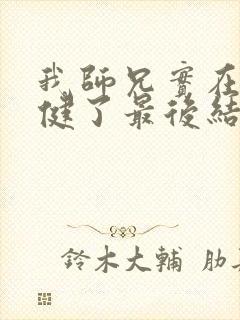 我師兄實在
健了最後結
鈴木大輔 肋